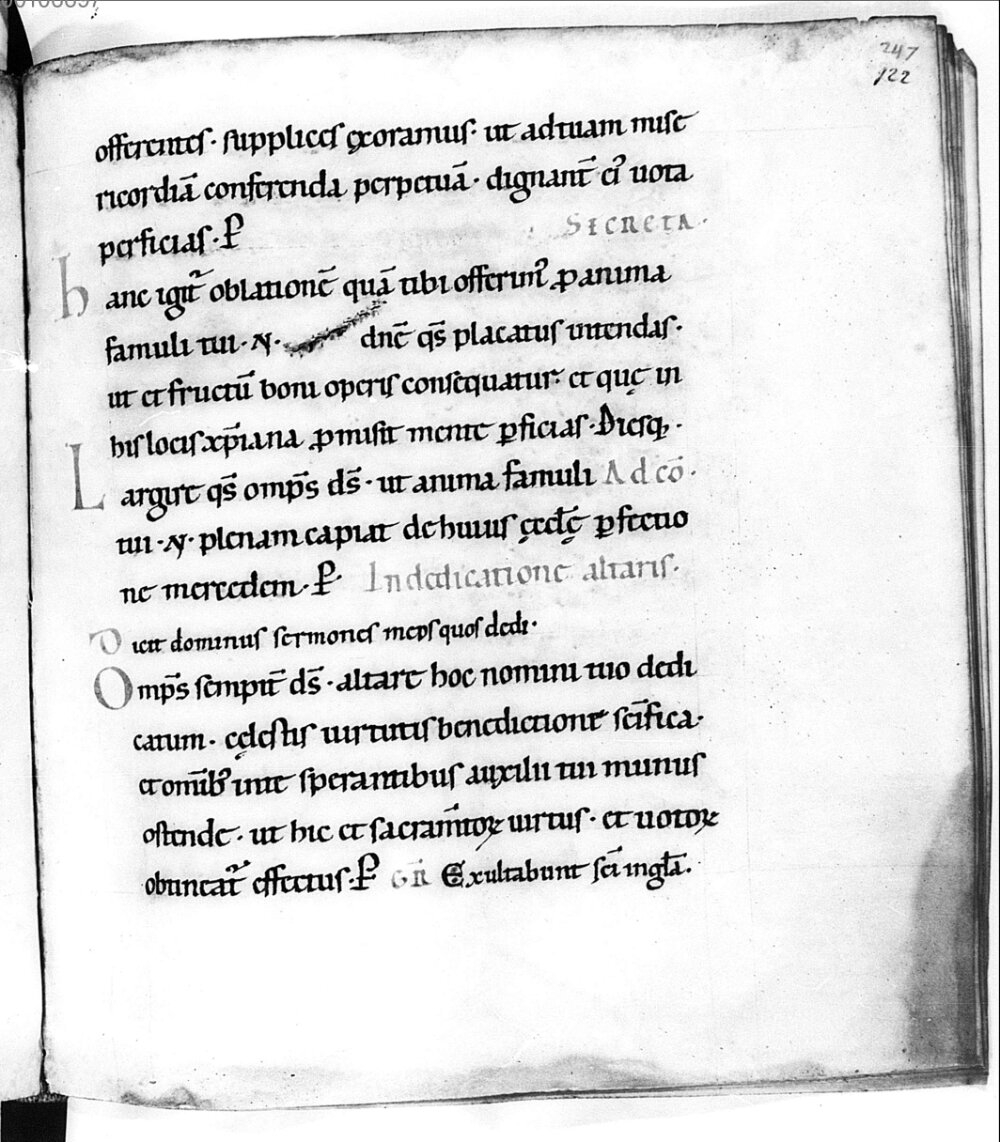 247
122
offerentes· supplices ęxoramus· ut ad tuam mise
ricordiā conferenda perpetuā· dignant̄ ei᷒ uota
perficias·P̄
SECRETA·
hanc igit᷒ oblationē quā tibi offerim᷒ ꝓ anima
famuli tui·N· dnē qs̄ placatus intendas·
ut et fructū boni operis consequatur· et quę in
his locis xp̄iana ꝓmisit mente ꝑficias·Diesq;·
Largire qs̄ omps̄ ds̄· ut anima famuli Ad cō·
tui·N· plenam capiat de huius ęccłę ꝑfectio
ne mercedem·P̄· In dedicatione altaris·
Dicit dominus sermones meos quos dedi·
Omps̄ sempit̄ ds̄· altare hoc nomini tuo dedi
catum· cęlestis uirtutis benedictione sc̄ifica·
et omīb᷒ in te sperantibus auxilii tui munus
ostende· ut hic et sacram̄toꝝ uirtus· et uotoꝝ
obtineat᷒ effectus·P̄ GR̄ Exultabunt sc̄i in gła·